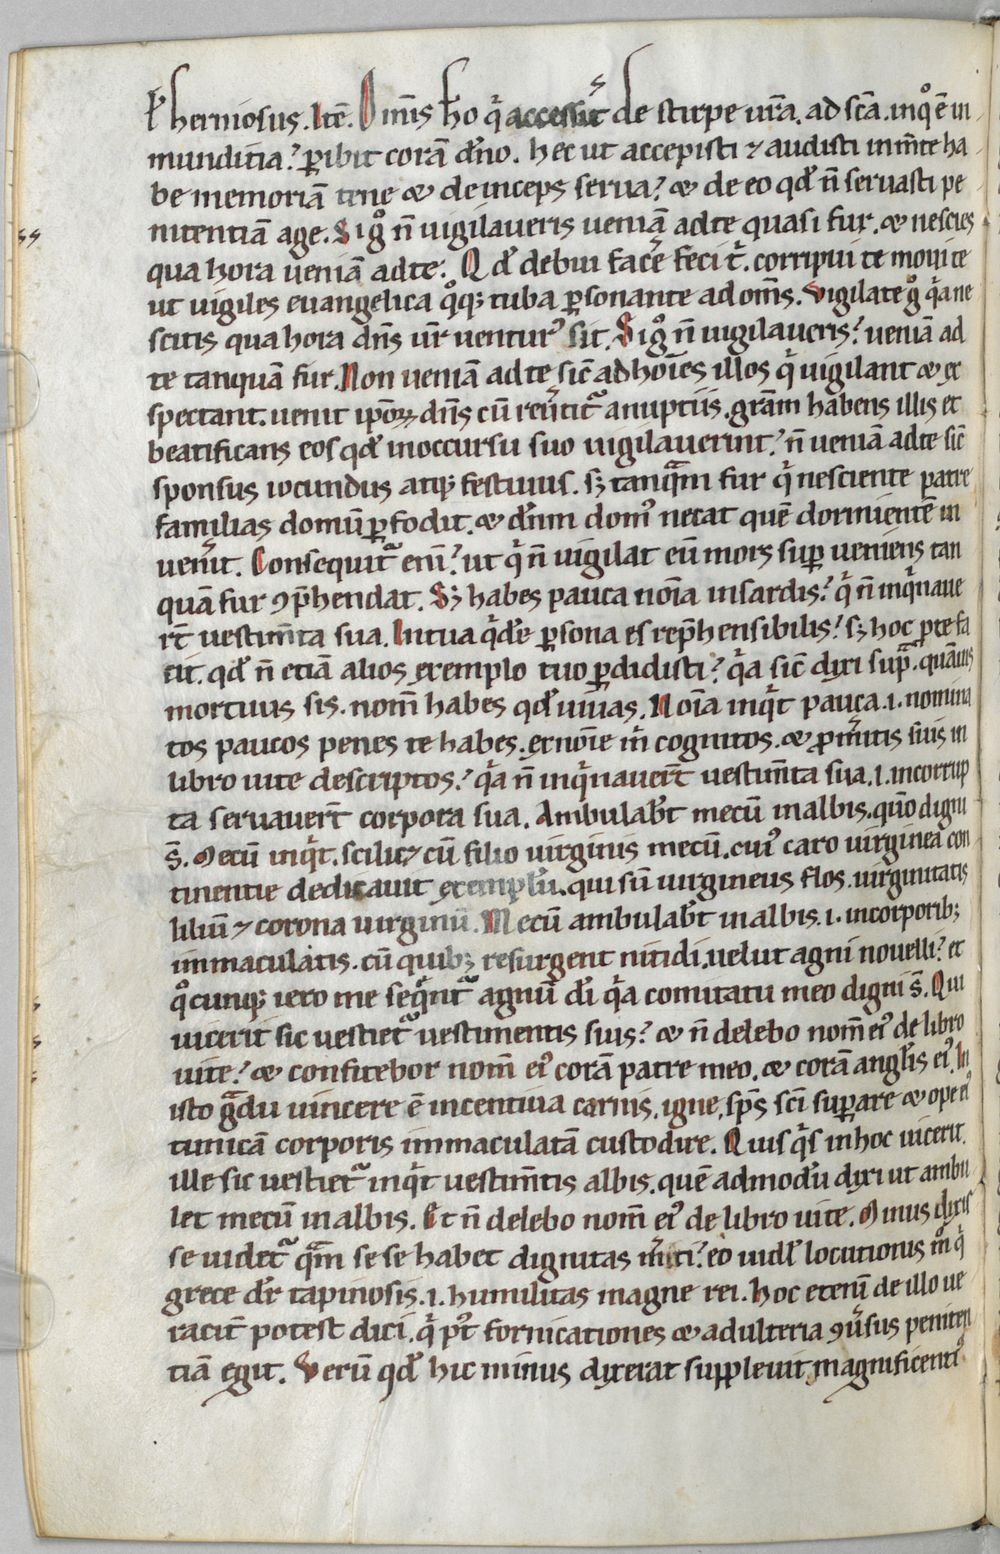 ł herniosus. Itē. Omīs hō q̇ accesserit de stirpe ur̄a. ad sc̄a. inq̊ ē in
munditia? ꝑibit corā dn̄o. hec ut accepisti ⁊ audisti in m̄te ha
be memoriā tene & deinceps serva? & de eo qd̄ n̄ servasti pe
nitentiā age. Sig̊ n̄ vigilaveris veniā ad te quasi fur. & nescies
qua hora veniā ad te. Qd̄ debui facē feci t̄. corripui te monui te
ut vigiles euangelica q̊q; tuba ꝑsonante ad om̄s. Vigilate g̊ q̇a ne
scitis qua hora dn̄s ur̄ ventur᾽ sit. Sig̊ n̄ vigilaveris? veniā ad
te tanquā fur. Non veniā ad te sic̄ ad hoīes illos q̇ vigilant & ex
spectant. venit ipōꝝ dn̄s cū reūtit᷑ a nuptiis. gr̄am habens illis et
beatificans eos qd̄ in occursu suo vigilaverint? n̄ veniā ad te sic̄
sponsus iocundus atq; festivus. sꝫ tanqᷓm fur q̇ nesciente patre
familias domū ꝑfodit. & dn̄m dom᾽ necat quē dormientē in
ven̄it. Consequit᷑ eni᷒? ut q̇ n̄ vigilat eū mors suꝑ veniens tan
quā fur ꝯp̄hendat. Sꝫ habes pauca noīa in sardis? q̇ n̄ inq̇nave
rt̄ vestim̄ta sua. In tua q̇de ꝑsona es rep̄hensibilis? sꝫ hoc ꝑ te fa
cit. qd̄ n̄ etiā alios exemplo tuo ꝑdidisti? q̇a sic̄ dixi sup̄ᷓ. quāvis
mortuus sis. nom̄ habes qd̄ vivas. Noīa inq̇t pauca .i. nomina
tos paucos penes te habes. ex noīe m̄ cognitos. & ꝓm̄itis suis in
libro vite descriptos? q̇a n̄ inq̇navert̄ vestim̄ta sua .i. incorrup
ta servavert̄ corpora sua. Ambulab̄t mecū in albis. qn̄o digni
s̄. Mecū inq̇t. scilicꝫ cū filio virginis mecū. cui᾽ caro virginea con
tinentie dedicavit exemplū. qui sū virgineus flos. virginitatis
liliū ⁊ corona virginū. Mecū ambulab̄t in albis .i. in corporib;
immaculatis. cū quib; resurgent nitidi. velut agni novelli? et
q̊cunq; iero me seq̄nt᷑ agnū dī q̇a comitatu meo digni s̄. Qui
vicerit sic vestiet᷑ vestimentis suis? & n̄ delebo nom̄ ei᾽ de libro
vite? & confitebor nom̄ ei᾽ corā patre meo. & corā angl̄is ei᾽. In
isto gᷓdu vincere ē incentiva carnis. igne. sps̄ sc̄i suꝑare & ope ei᾽
tunicā corporis immaculatā custodire. Quis q̇s in hoc vicerit.
ille sic vestiet᷑ inq̇t vestim̄tis albis. quē admodū dixi ut ambu
let mecū in albis. Et n̄ delebo nom̄ ei᾽ de libro vite. Minus dixis
se videt᷑ qᷓm se se habet dignitas m̄iti? eo vidl̄ locutionis m̊ q̇
grece dr̄ tapinosis .i. humilitas magne rei. hoc eteni᷒ de illo ve
racit̄ potest dici. q̇ p̄t fornicationes & adulteria ꝯūsus peniten
tiā egit. Verū qd̄ hic minus dixerat supplevit magnificenti᾽